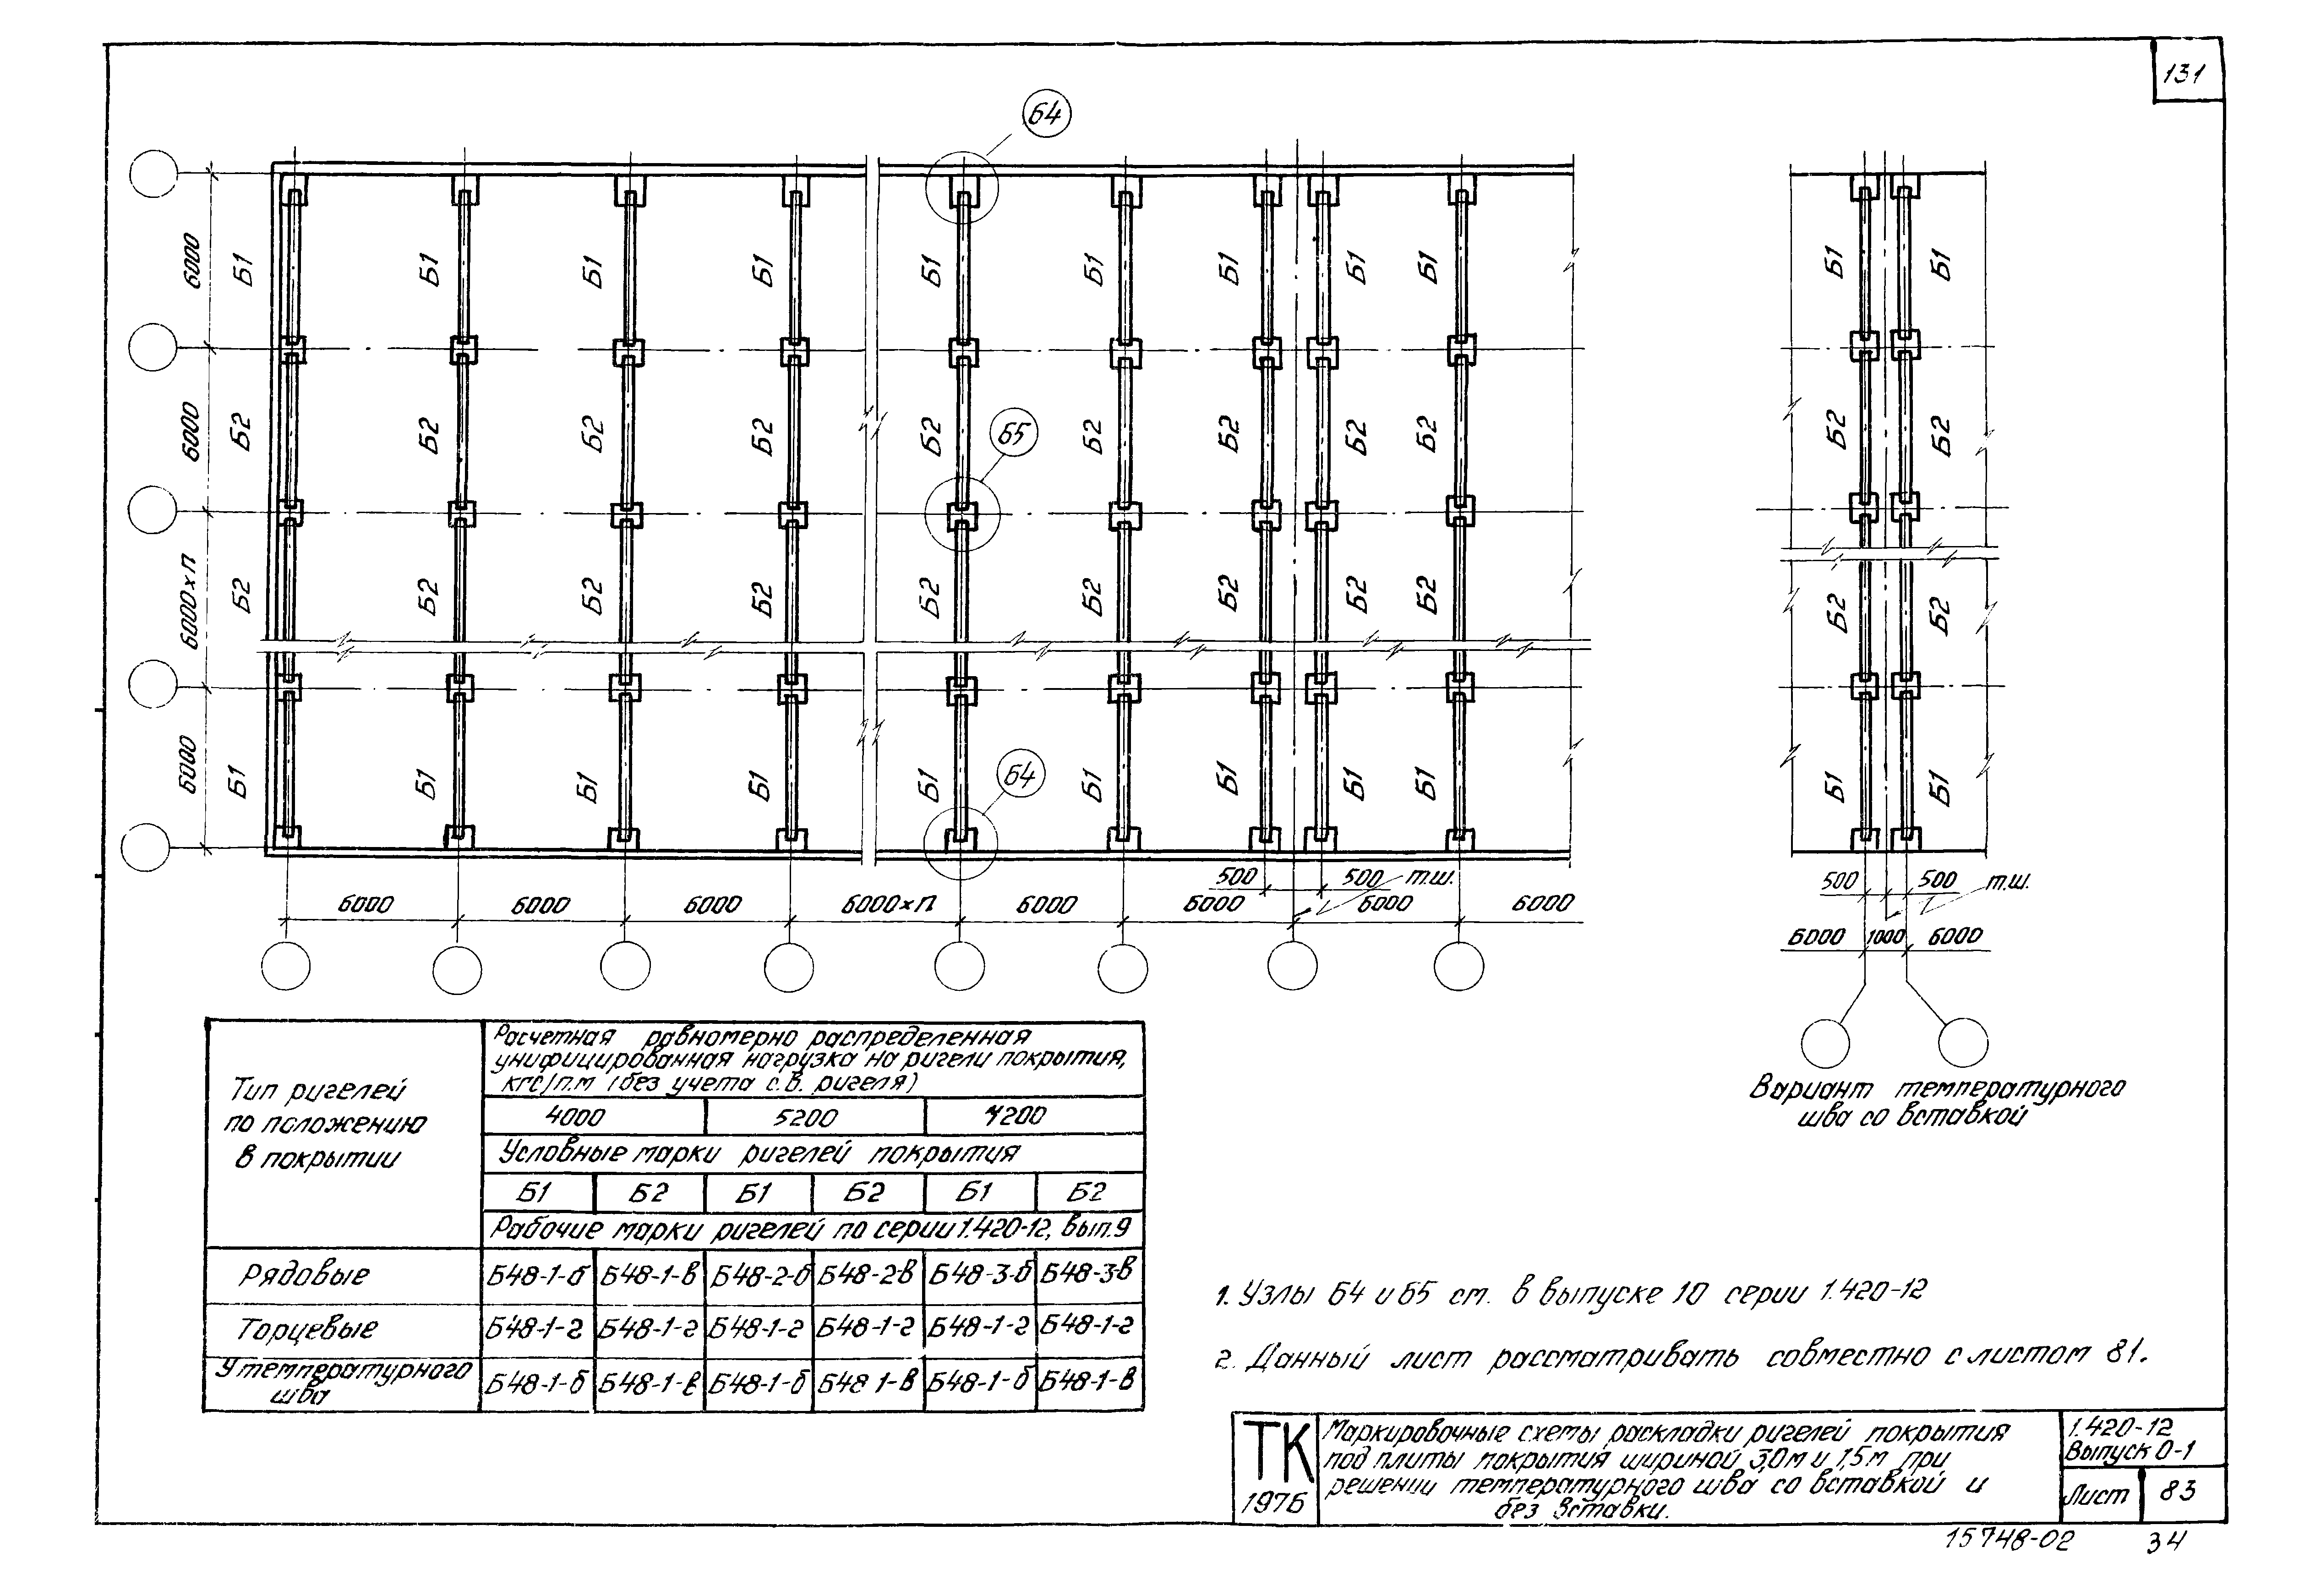 131
64
6000 Б1 Б1 Б1 Б1 Б1 Б1 Б1 Б1 Б1
6000 Б2 Б2 Б2 Б2 Б2 65 Б2 Б2 Б2 Б2
6000×п Б2 Б2 Б2 Б2 Б2 Б2 Б2 Б2 Б2
6000 Б1 Б1 Б1 Б1 Б1 64 Б1 Б1 Б1 Б1
500 500 т.ш.
6000 6000 6000 6000×п 6000 6000 6000 6000
Б1 Б1
Б2 Б2
Б2 Б2
Б1 Б1
500 500 т.ш.
6000 1000 6000
Вариант температурного
шва со вставкой
Тип ригелей
по положению
в покрытии
Расчетная равномерно распределенная
унифицированная нагрузка на ригели покрытия,
кгс/п.м (без учета с.в. ригеля)
4000 5200 7200
Условные марки ригелей покрытия
Б1 Б2 Б1 Б2 Б1 Б2
Рабочие марки ригелей по серии 1.420-12, вып.9
Рядовые Б48-1-б Б48-1-в Б48-2-б Б48-2-в Б48-3-б Б48-3-в
Торцевые Б48-1-г Б48-1-г Б48-1-г Б48-1-г Б48-1-г Б48-1-г
У температурного
шва Б48-1-б Б48-1-в Б48-1-б Б48 1-в Б48-1-б Б48-1-в
1. Узлы 64 и 65 см. в выпуске 10 серии 1.420-12
2. Данный лист рассматривать совместно с листом 81.
ТК
1976
Маркировочные схемы раскладки ригелей покрытия
под плиты покрытия шириной 3,0м и 1,5м при
решении температурного шва со вставкой и
без вставки.
1.420-12
Выпуск 0-1
Лист 83
15748-02 34